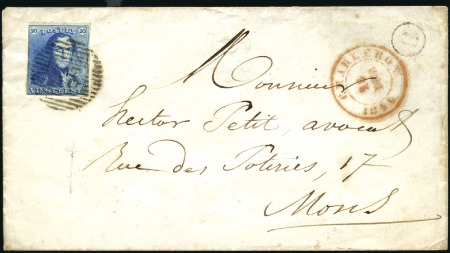 20 POSTES 20
VINGT CENTS
CHARLEROY
Monsieur
hector Petit, avocat
Rue des Poteries, 17
Mons